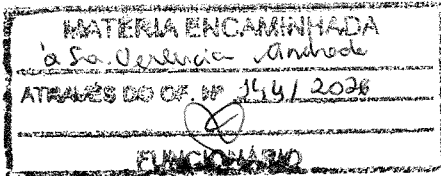 MATERIA ENCAMINHADA
à Sra. Andrade
ATRAVÉS DO OF. Nº 144/2026
FUNCIONARIO